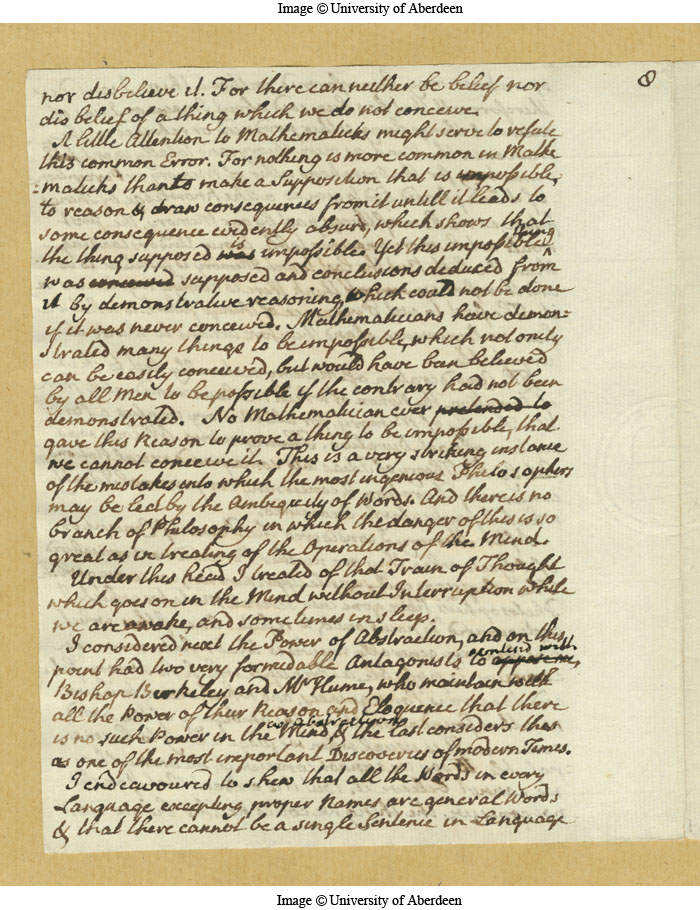 Image © University of Aberdeen
8
nor disbelieve it. For there can neither be belief nor
disbelief of a thing which we do not conceive.
A little Attention to Mathematicks might serve to refute
this common Error. For nothing is more common in Mathe
-maticks than to make a Supposition that is impossible,
to reason & draw consequences from it untill it leads to
some consequence evidently absurd, which shows that
the thing supposed was is impossible. Yet this impossible thing
was conceived supposed and conclusions deduced from
it by demonstrative reasoning, which could not be done
if it was never conceived. Mathematicians have demon-
strated many things to be impossible, which not only
can be easily conceived, but would have been believed
by all Men to be possible if the contrary had not been
demonstrated. No Mathematician ever pretended to
gave this Reason to prove a thing to be impossible, that
we cannot conceive it. This is a very striking instance
of the mistakes into which the most ingenious Philosophers
may be led by the Ambiguity of Words. And there is no
branch of Philosophy in which the danger of this is so
great as in treating of the Operations of the Mind.
Under this head I treated of that Train of Thought
which goes on in the Mind without Interruption while
we are awake, and sometimes in sleep.
I considered next the Power of Abstraction, and on this
point had two very formidable Antagonists to oppose me, contend with
Bishop Berkeley and Mr Hume, who maintain with
all the Power of their Reason and Eloquence that there
is no such Power in the Mind as abstraction & the last considers this
as one of the most important Discoveries of modern Times.
I endeavoured to shew that all the Words in every
Language excepting proper Names are general Words
& that there cannot be a single Sentence in Language
Image © University of Aberdeen